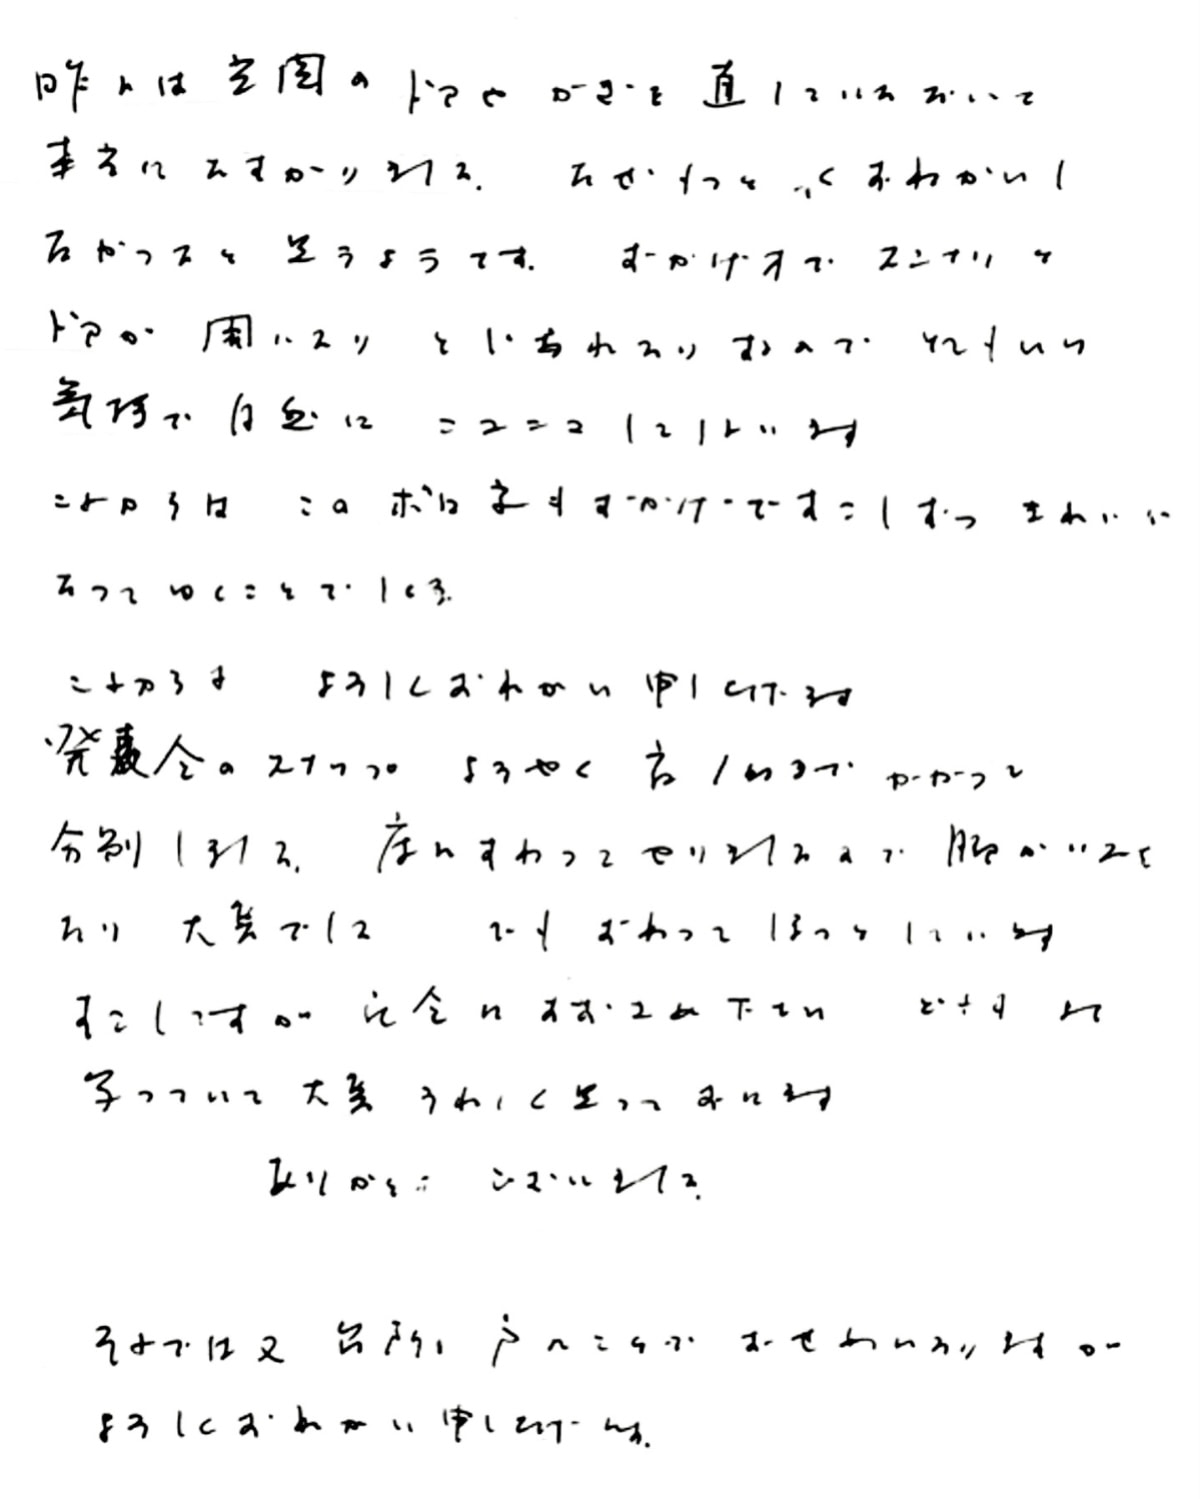 昨日は玄関のドアやかぎを直していただいて
本当にたすかりました。なぜもっと早くおねがいし
なかったと思うようです。おかげ様でスンナリと
ドアが開いたり とじられたりするので とてもいい
気持で自然に ニコニコしてしまいます
これからは このボロ家もおかげですこしずつ きれいに
なってゆくことでしょう。
これからも よろしくおねがい申し上げます
発表会のスナップ ようやく 夜 までかかって
分別しました。床にすわってやりましたので 腰がいたく
なり 大変でした でも おわって ほっとしています
すこしですが 記念におおさめ下さい どれもよく
写っていて 大変うれしく思っております
ありがとうございました。
それでは又 台所の戸のことで おせわになりますが
よろしくおねがい申し上げます。